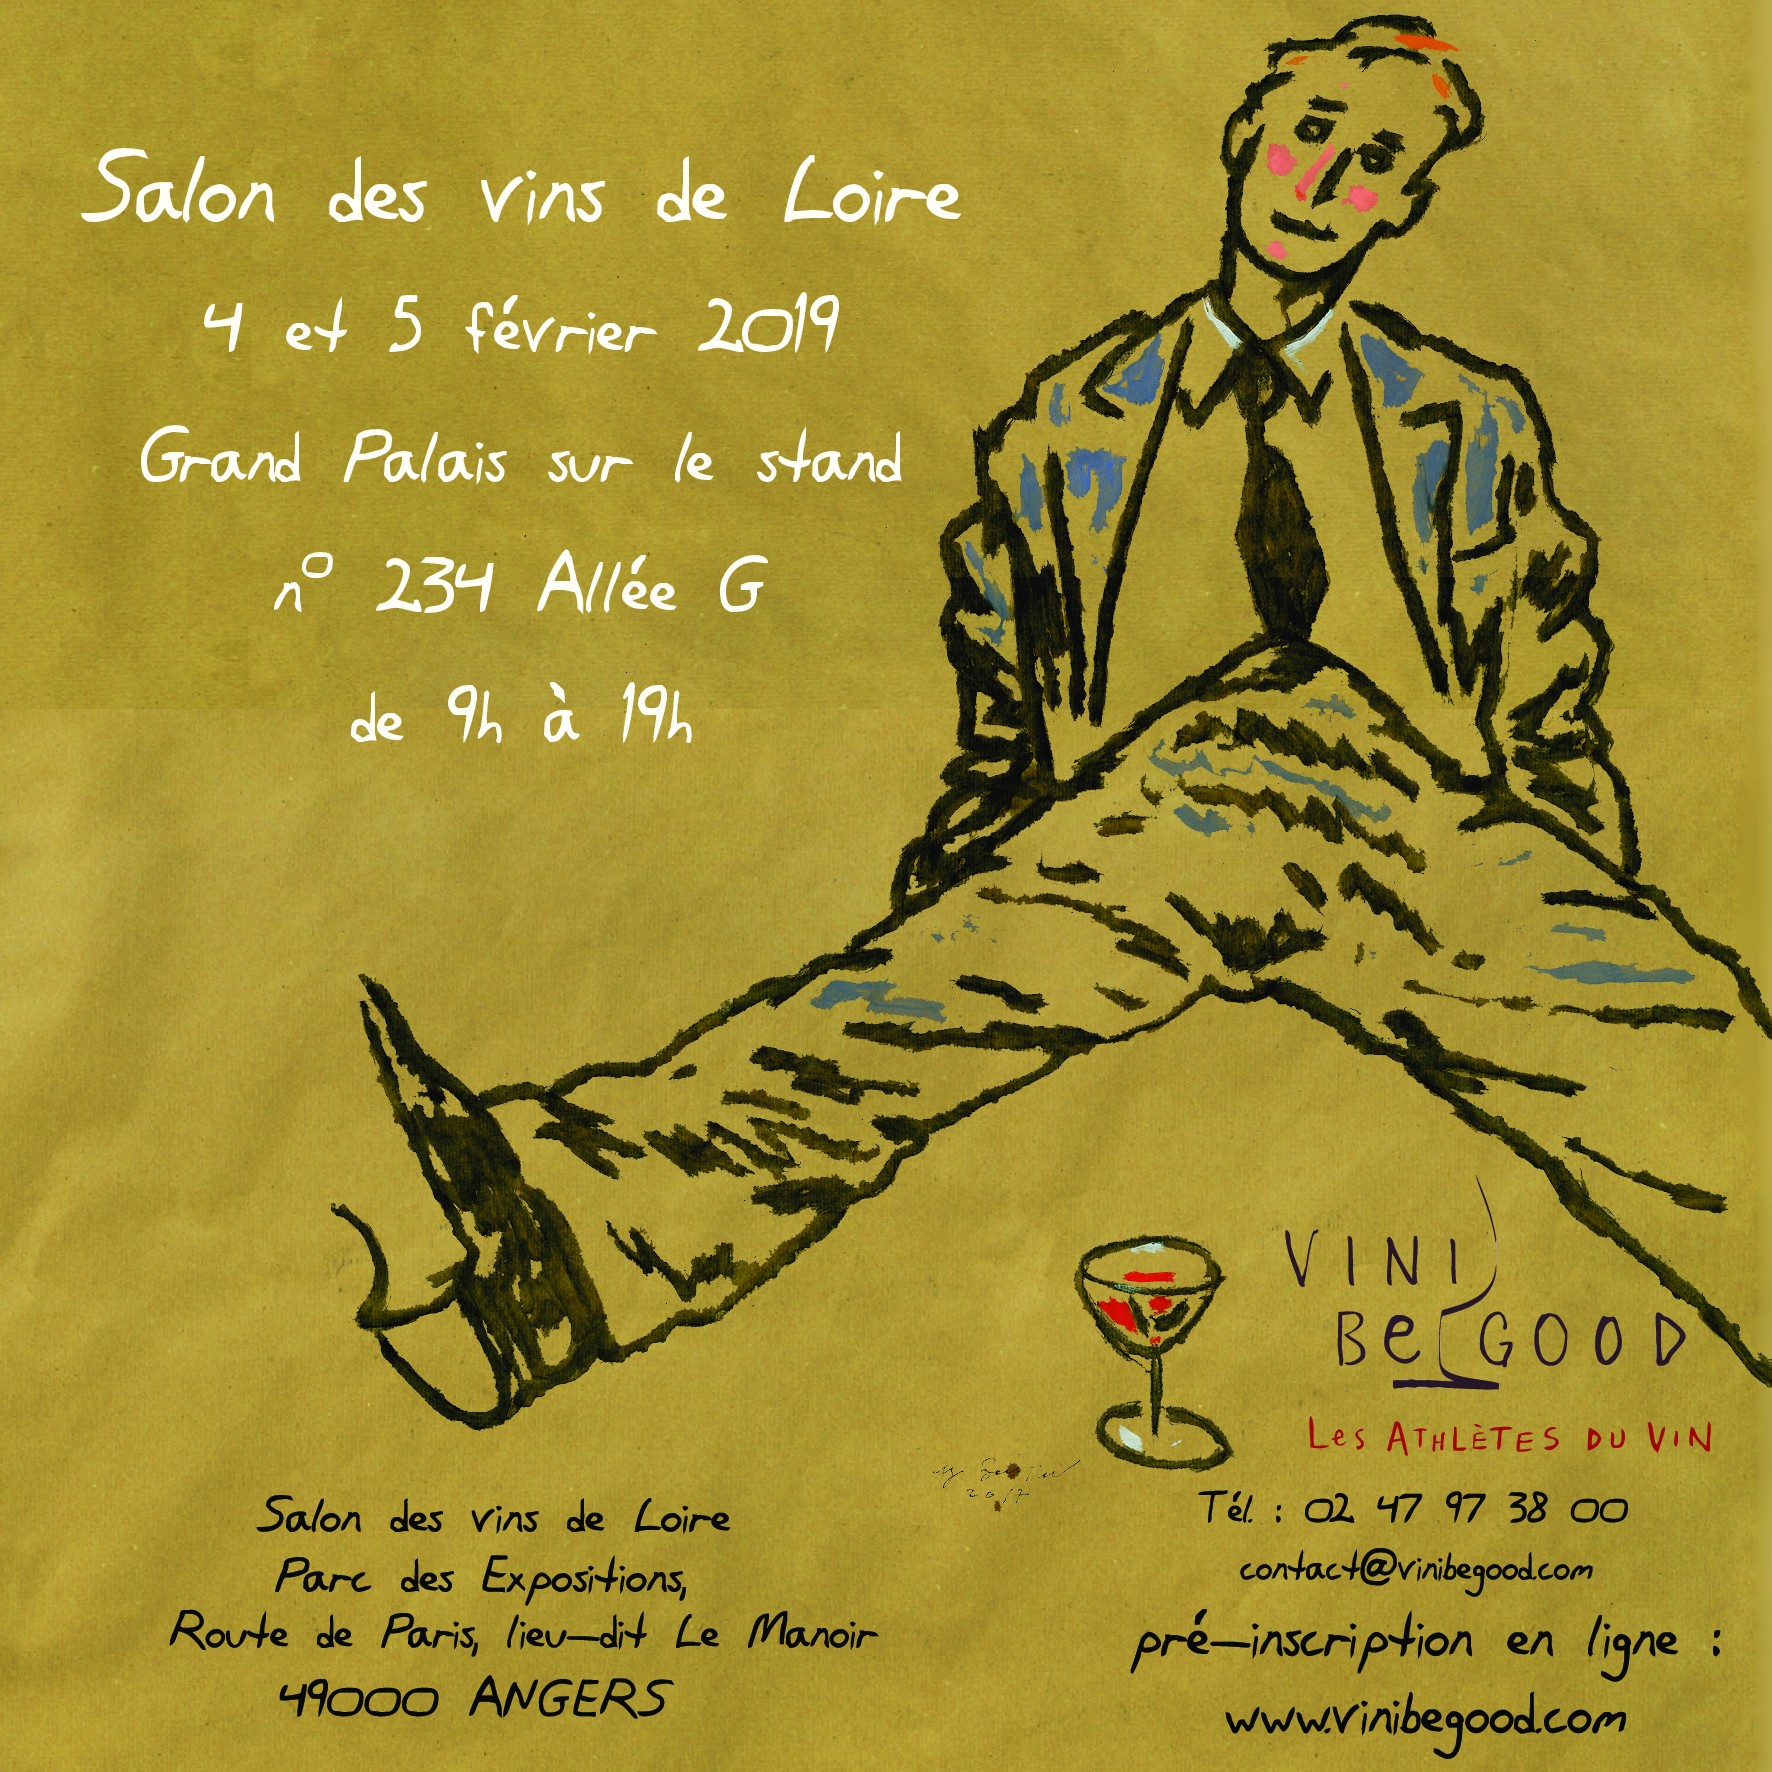 Salon des vins de Loire
4 et 5 février 2019
Grand Palais sur le stand
n° 234 Allée G
de 9h à 19h
VINI
Be GOOD
Les Athlètes du Vin
Salon des vins de Loire
Parc des Expositions,
Route de Paris, lieu-dit Le Manoir
49000 ANGERS
2017
Tél. : 02 47 97 38 00
contact@vinibegood.com
pré-inscription en ligne :
www.vinibegood.com